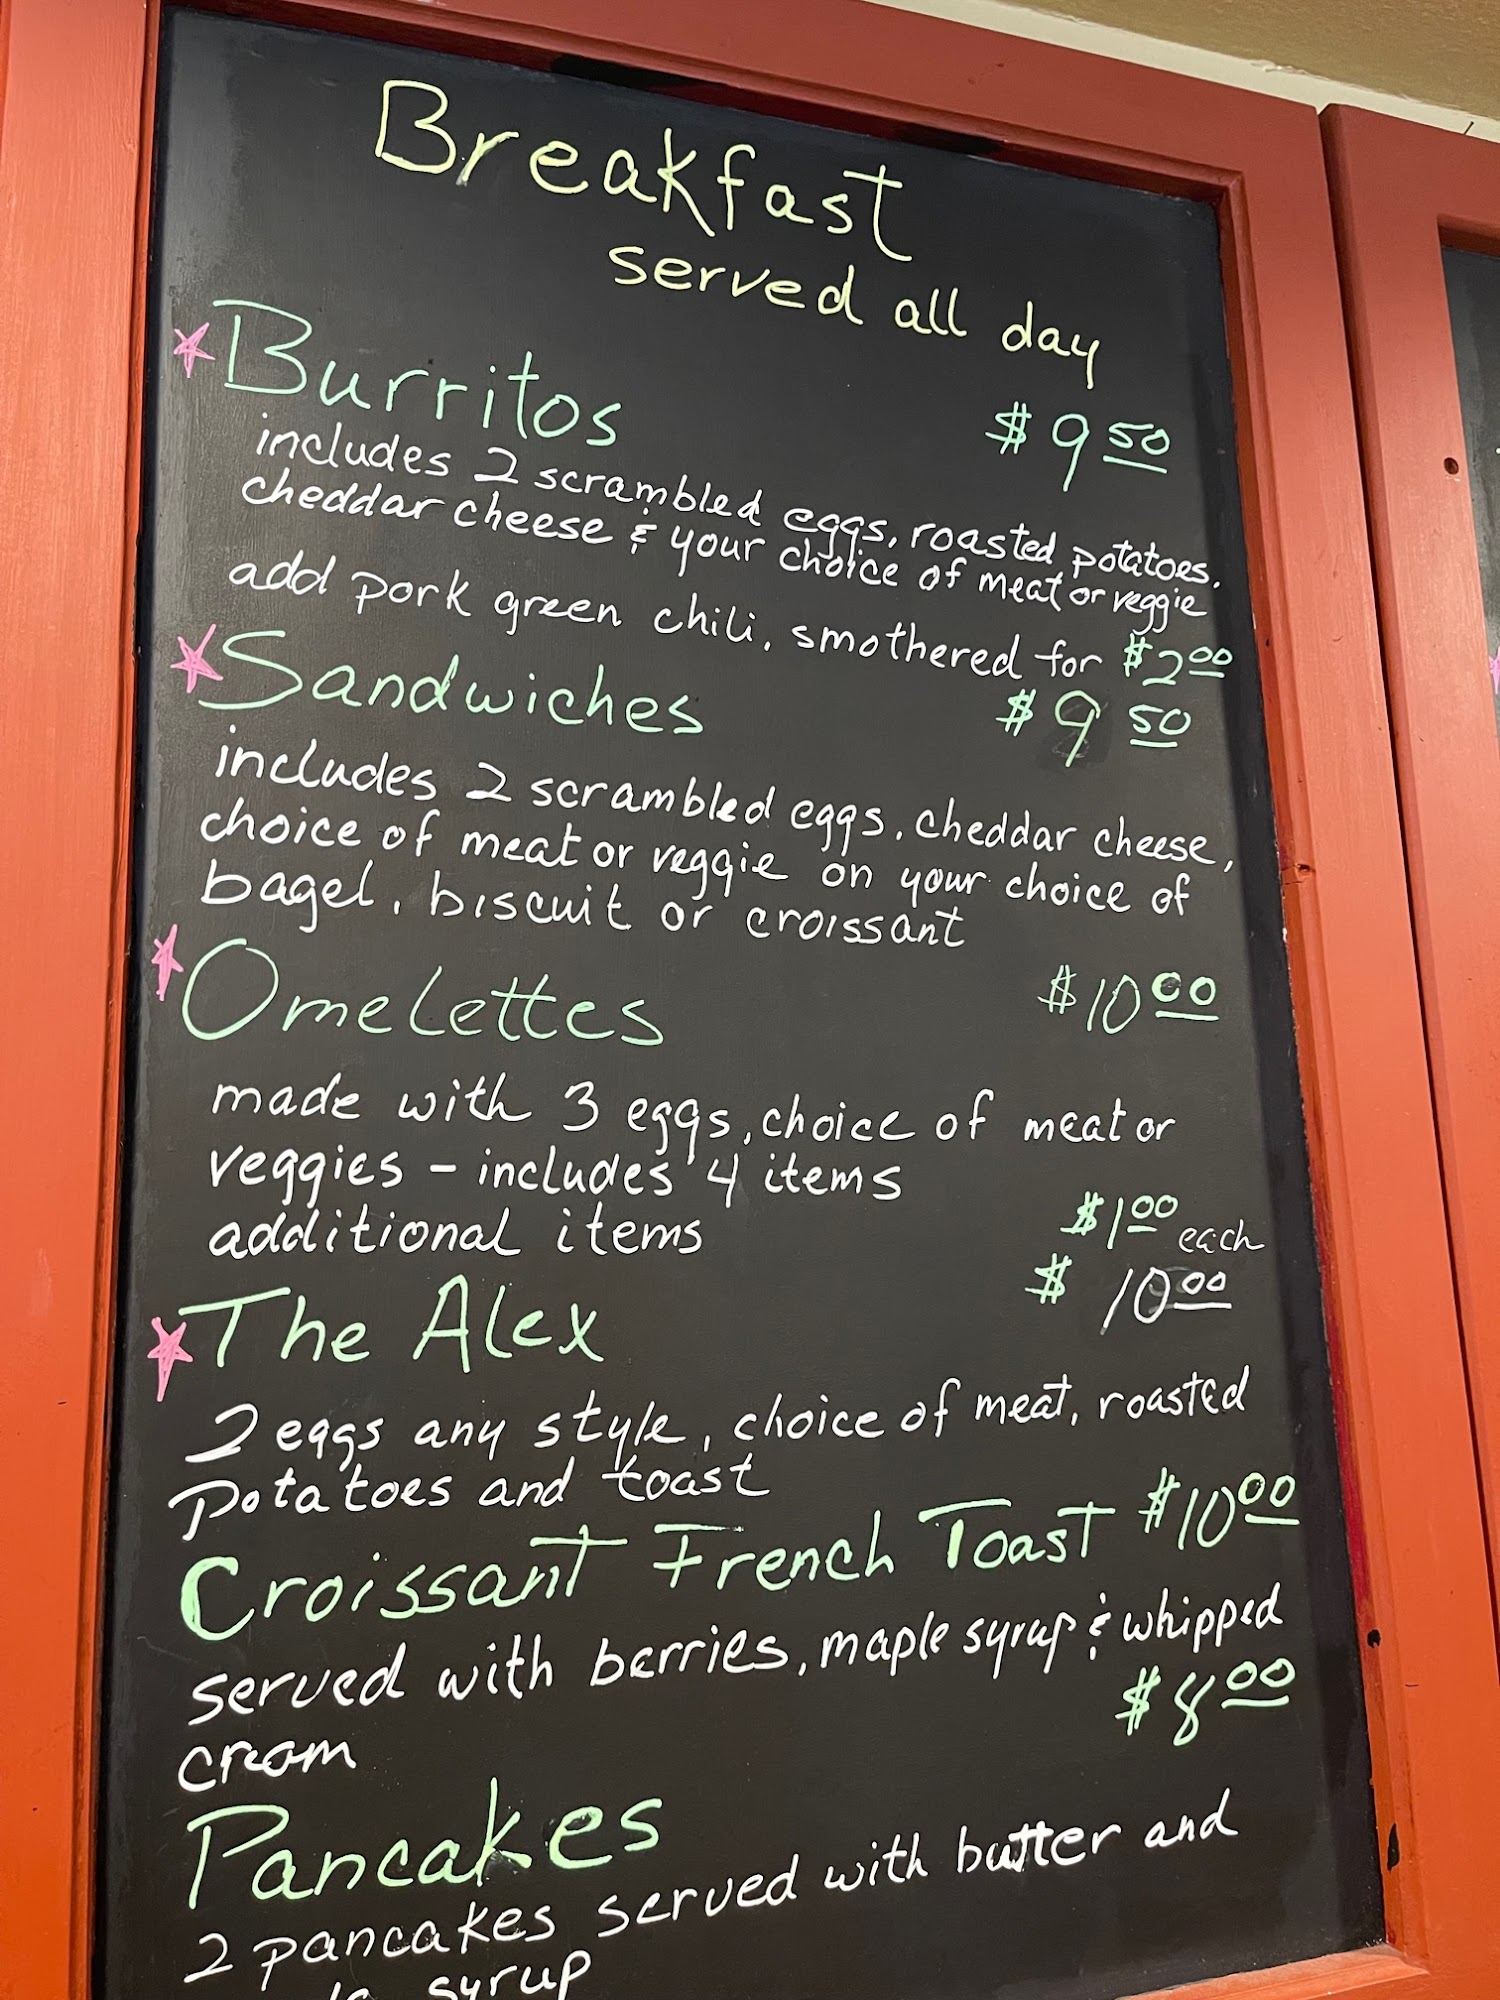 Breakfast
served all day
Burritos $9 50
includes 2 scrambled eggs, roasted potatoes,
cheddar cheese & your choice of meat or veggie
add pork green chili, smothered for $2 00
Sandwiches $9 50
includes 2 scrambled eggs, cheddar cheese,
choice of meat or veggie on your choice of
bagel, biscuit or croissant
Omelettes $10 00
made with 3 eggs, choice of meat or
veggies - includes 4 items
additional items $1 00 each
The Alex $10 00
2 eggs any style, choice of meat, roasted
potatoes and toast
Croissant French Toast $10 00
served with berries, maple syrup & whipped
cream
Pancakes $8 00
2 pancakes served with butter and
syrup